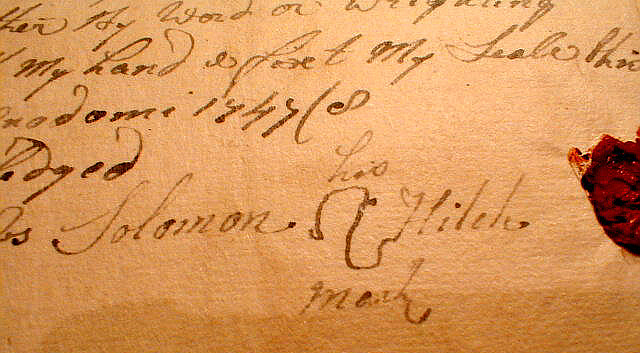 ther By Word or Wrighting
my hand & fixt my Seale this
nodomi 1747(8
edged
his
Solomon Hitch
mark